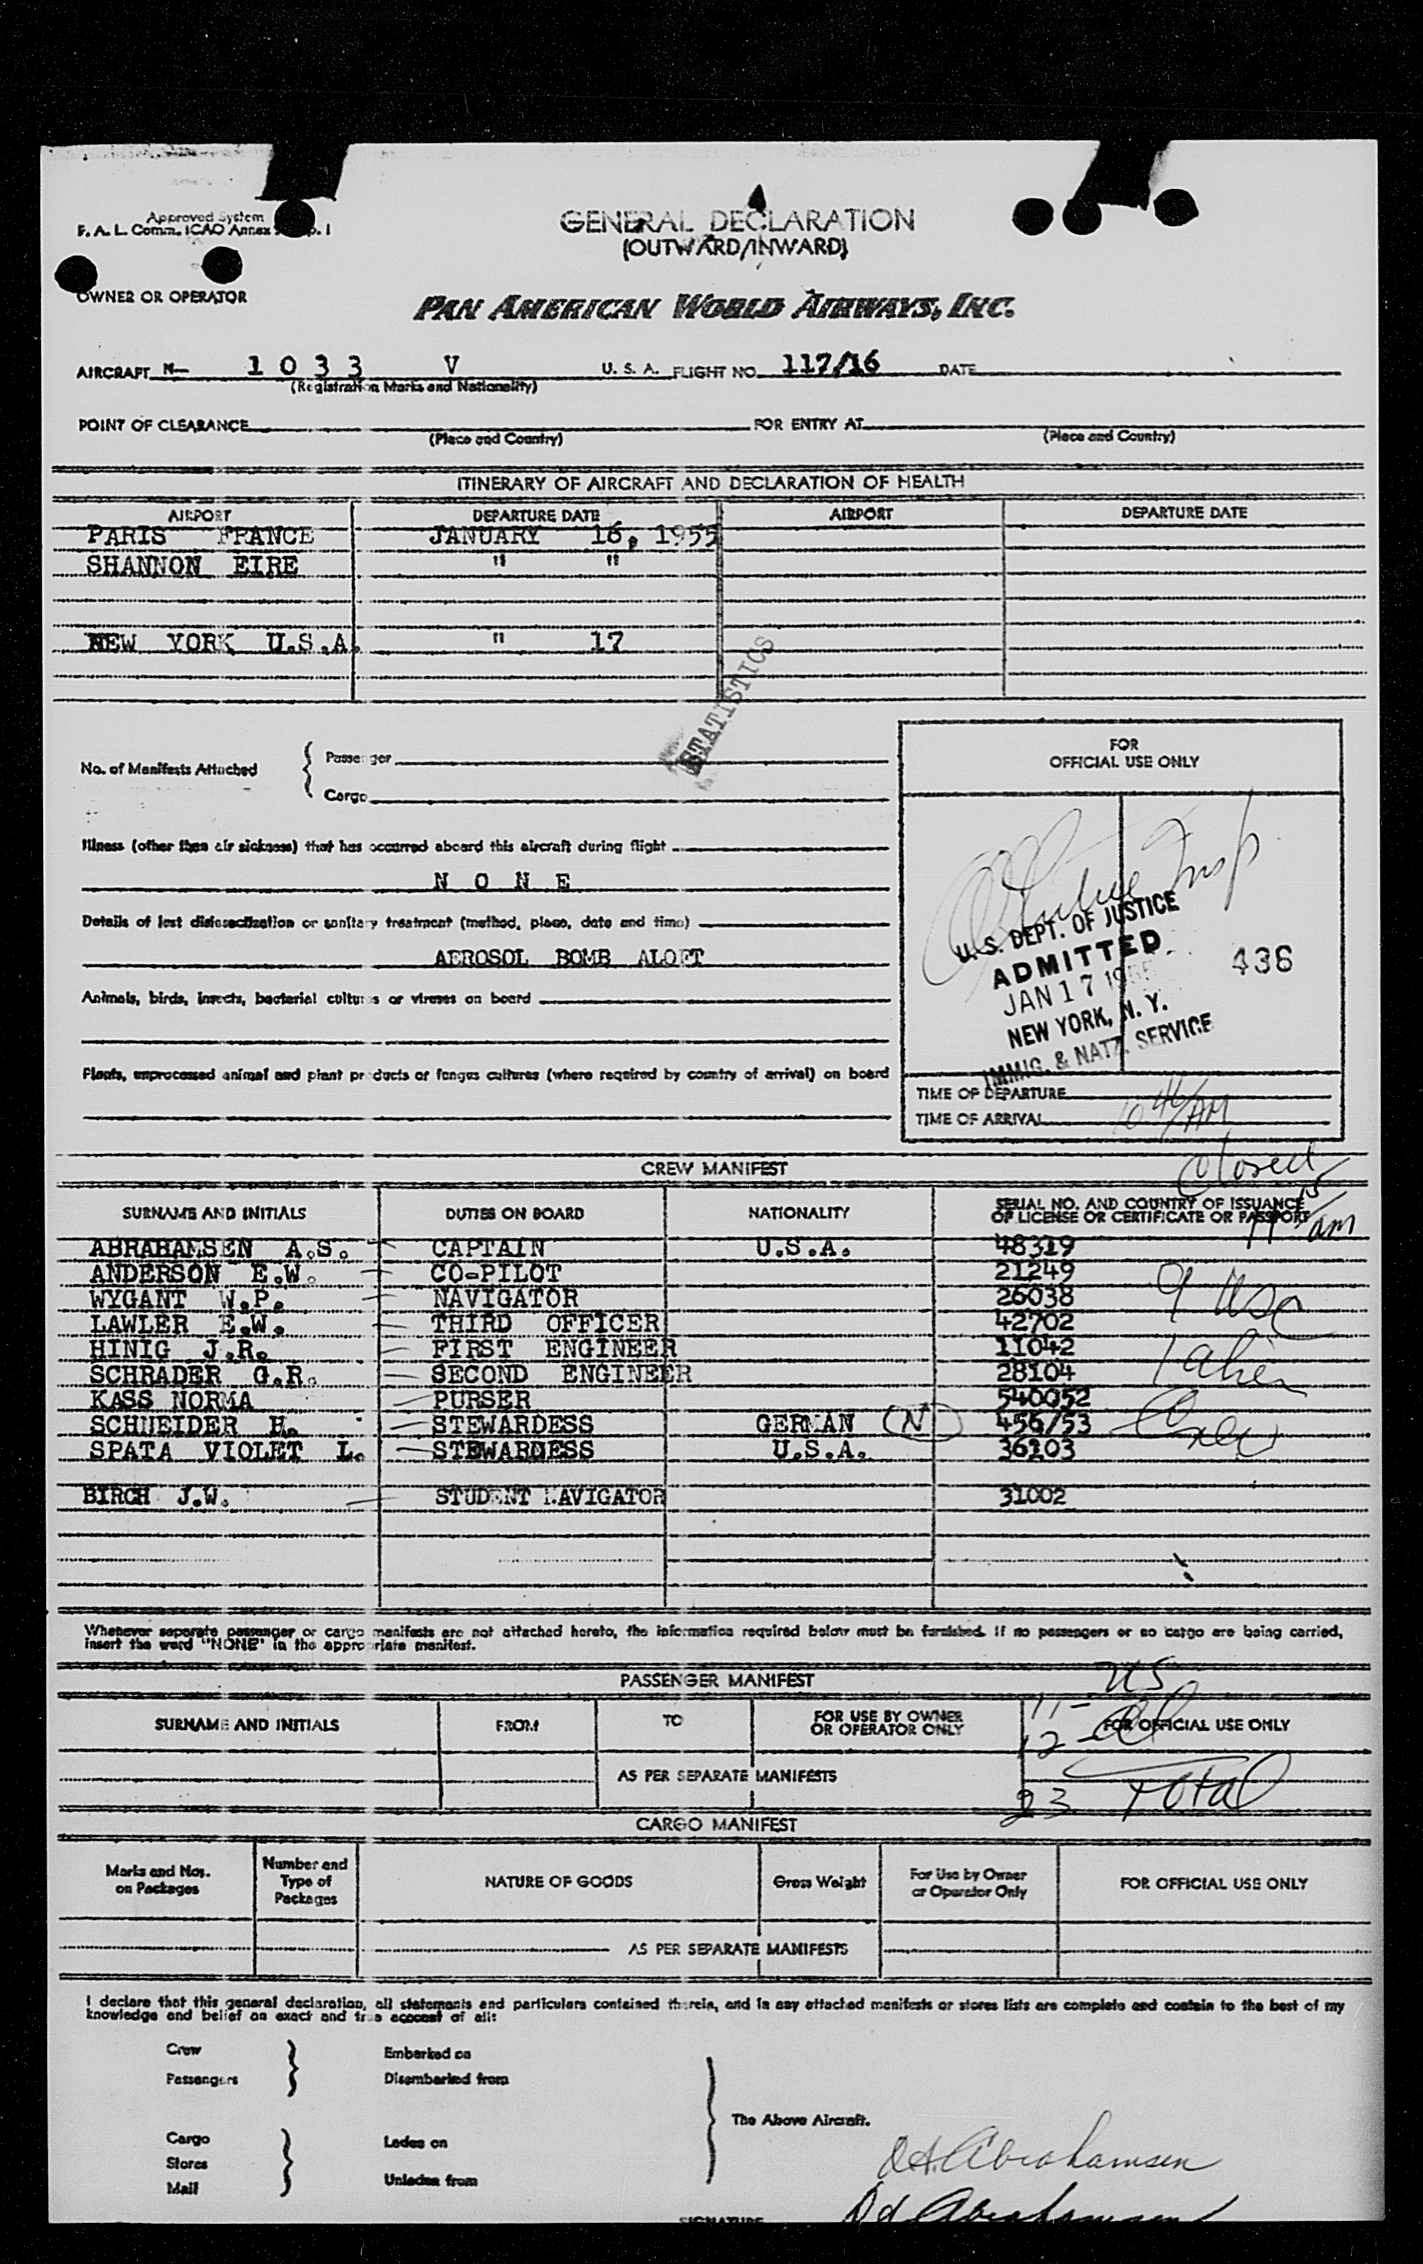 Approved System
F. A. L. Comm. ICAO Annex
GENERAL DECLARATION
(OUTWARD/INWARD)
OWNER OR OPERATOR
PAN AMERICAN WORLD AIRWAYS, INC.
AIRCRAFT N— 1 0 3 3 V U. S. A. FLIGHT NO. 117/16 DATE
(Registration Marks and Nationality)
POINT OF CLEARANCE FOR ENTRY AT
(Place and Country) (Place and Country)
ITINERARY OF AIRCRAFT AND DECLARATION OF HEALTH
AIRPORT DEPARTURE DATE AIRPORT DEPARTURE DATE
PARIS FRANCE JANUARY 16, 1955
SHANNON EIRE " "
NEW YORK U.S.A. " 17
STATISTICS
No. of Manifests Attached { Passenger
Cargo
FOR
OFFICIAL USE ONLY
Illness (other than air sickness) that has occurred aboard this aircraft during flight
N O N E
Details of last disinsectization or sanitary treatment (method, place, date and time)
AEROSOL BOMB ALOFT
Animals, birds, insects, bacterial cultures or viruses on board
Plants, unprocessed animal and plant products or fungus cultures (where required by country of arrival) on board
Insp
U. S. DEPT. OF JUSTICE
ADMITTED
JAN 17 1955
NEW YORK, N. Y.
IMMIG. & NATZ. SERVICE
436
TIME OF DEPARTURE
TIME OF ARRIVAL 10 46/AM
CREW MANIFEST
Closed
11 15/am
SURNAME AND INITIALS DUTIES ON BOARD NATIONALITY SERIAL NO. AND COUNTRY OF ISSUANCE
OF LICENSE OR CERTIFICATE OR PASSPORT
ABRAHAMSEN A.S. CAPTAIN U.S.A. 48319
ANDERSON E.W. CO-PILOT 21249
WYGANT W.P. NAVIGATOR 26038
LAWLER E.W. THIRD OFFICER 42702
HINIG J.R. FIRST ENGINEER 11042
SCHRADER G.R. SECOND ENGINEER 28104
KASS NORMA PURSER 540052
SCHNEIDER H. STEWARDESS GERMAN (N) 456/53
SPATA VIOLET L. STEWARDESS U.S.A. 36203
BIRCH J.W. STUDENT NAVIGATOR 31002
9 USC
1 alien
Crew
Whenever separate passenger or cargo manifests are not attached hereto, the information required below must be furnished. If no passengers or no cargo are being carried,
insert the word "NONE" in the appropriate manifest.
PASSENGER MANIFEST
SURNAME AND INITIALS FROM TO FOR USE BY OWNER
OR OPERATOR ONLY FOR OFFICIAL USE ONLY
11- US
12-
23 Total
AS PER SEPARATE MANIFESTS
CARGO MANIFEST
Marks and Nos.
on Packages Number and
Type of
Packages NATURE OF GOODS Gross Weight For Use by Owner
or Operator Only FOR OFFICIAL USE ONLY
AS PER SEPARATE MANIFESTS
I declare that this general declaration, all statements and particulars contained therein, and in any attached manifests or stores lists are complete and contain to the best of my
knowledge and belief an exact and true account of all:
Crew Embarked on
Passengers Disembarked from
The Above Aircraft.
Cargo Laden on
Stores
Mail Unladen from
A Abrahamsen
SIGNATURE A Abrahamsen